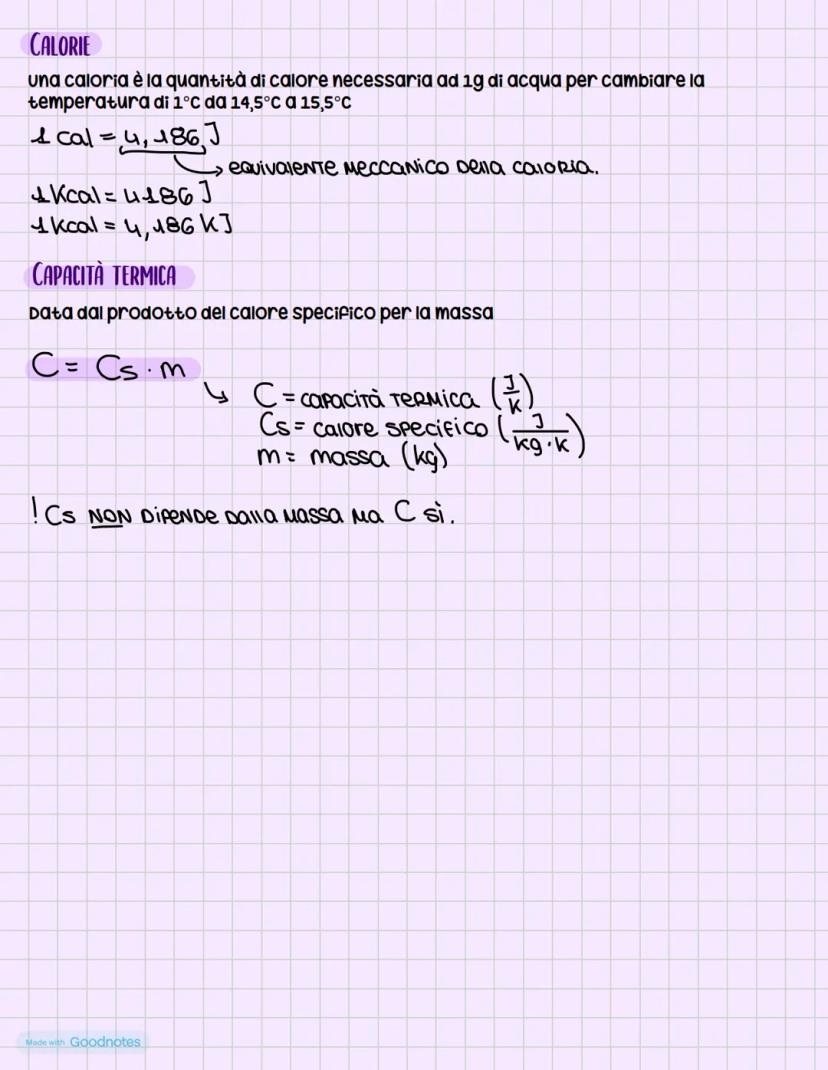 CALORIE
una caloria è la quantità di calore necessaria ad 1g di acqua per cambiare la
temperatura di 1°C da 14,5°C a 15,5°C
1 cal = 4,186 J
EQUIVALENTE MECCANICO DELLA CALORIA.
1 Kcal = 4186 J
1 kcal = 4,186 KJ
CAPACITÀ TERMICA
Data dal prodotto del calore specifico per la massa
C = Cs · m
C = CAPACITÀ TERMICA (J/K)
Cs = CALORE SPECIFICO (J/kg·K)
m = massa (kg)
! Cs NON DIPENDE DALLA MASSA MA C sì.
Made with Goodnotes